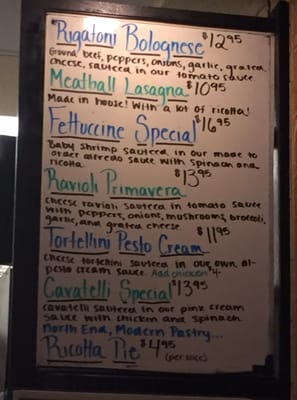 Rigatoni Bolognese $12.95
Ground beef, peppers, onions, garlic, grated
cheese, sauteed in our tomato sauce
Meatball Lasagna $10.95
Made in house! With a lot of ricotta!
Fettuccine Special $16.95
Baby shrimp sauteed in our made to
order alfredo sauce with spinach and
ricotta.
Ravioli Primavera $13.95
cheese ravioli sauteed in tomato sauce
with peppers, onions, mushrooms, broccoli,
garlic, and grated cheese.
Tortellini Pesto Cream $11.95
cheese tortellini sauteed in our own al-
pesto cream sauce. Add chicken $4-
Cavatelli Special $13.95
cavatelli sauteed in our pink cream
sauce with chicken and spinach
North End, Modern Pastry...
Ricotta Pie $4.95
(per slice)